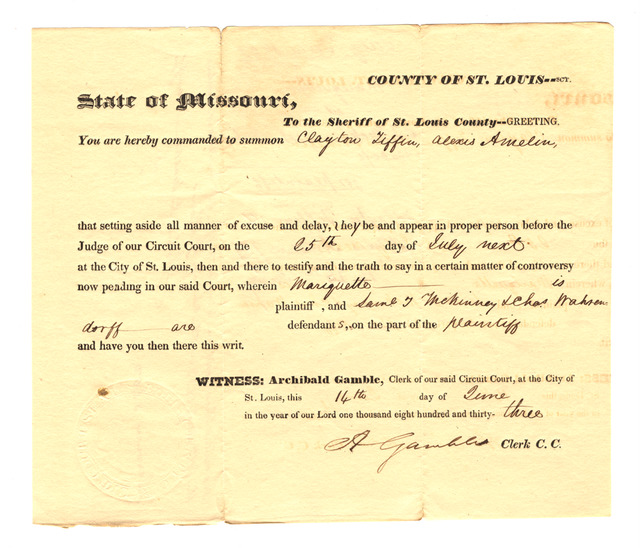 COUNTY OF ST. LOUIS--SCT.
State of Missouri,
To the Sheriff of St. Louis County--GREETING.
You are hereby commanded to summon Clayton Tiffin, Alexis Amelin,
that setting aside all manner of excuse and delay, they be and appear in proper person before the
Judge of our Circuit Court, on the 25th day of July next
at the City of St. Louis, then and there to testify and the truth to say in a certain matter of controversy
now pending in our said Court, wherein Mariguette is
plaintiff, and Saml T McKinney & Chas. Wahren
dorff are defendants, on the part of the plaintiff
and have you then there this writ.
WITNESS: Archibald Gamble, Clerk of our said Circuit Court, at the City of
St. Louis, this 14th day of June
in the year of our Lord one thousand eight hundred and thirty-three
A Gamble Clerk C. C.